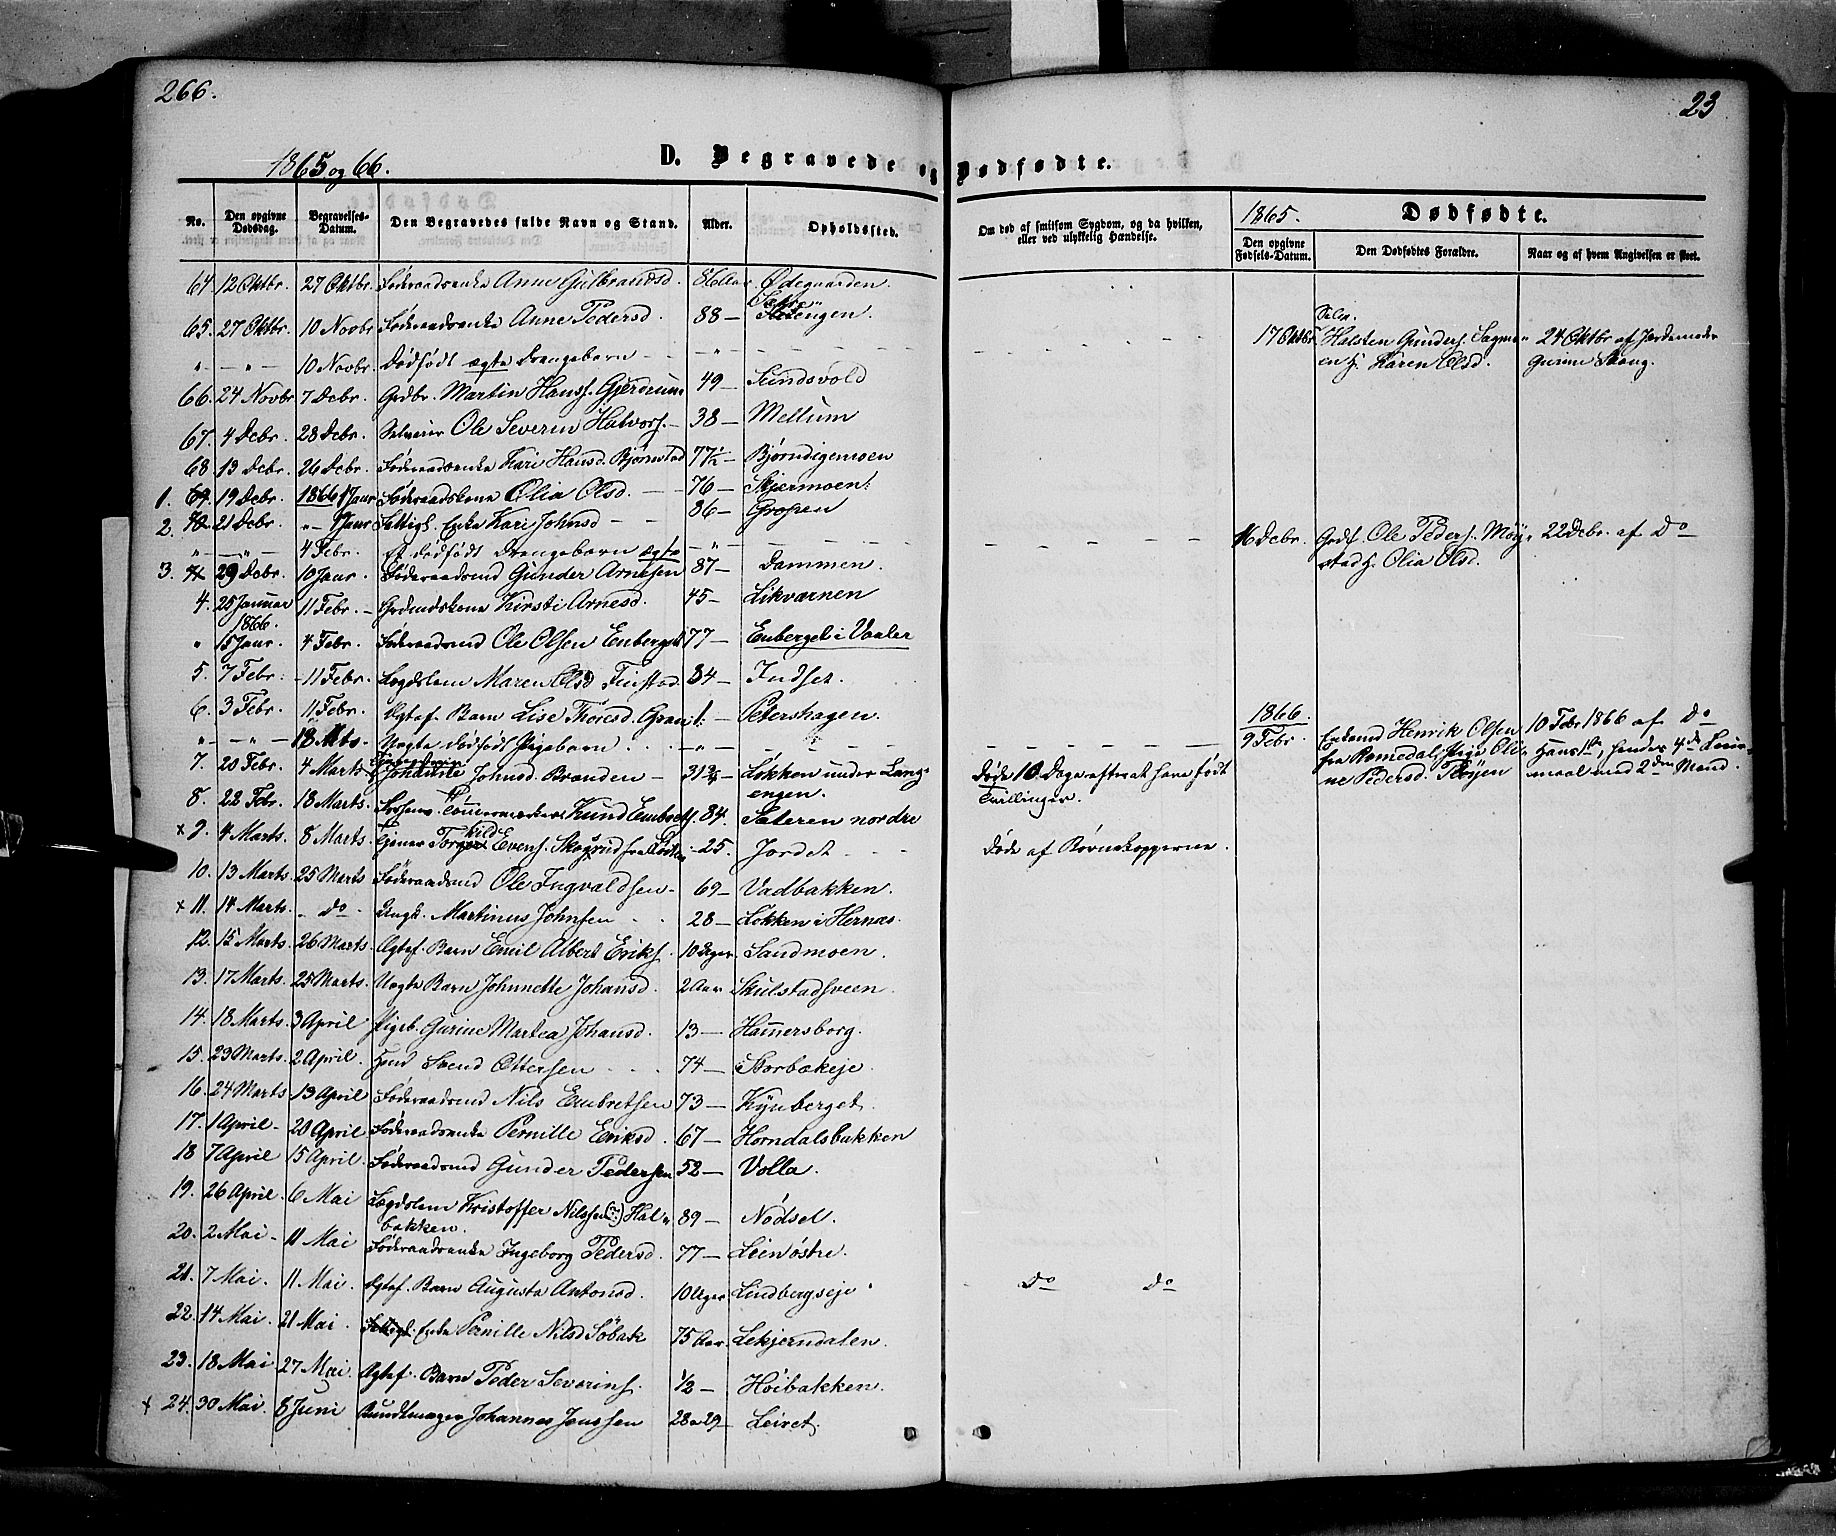 266.
23
1865 og 66.
D. Begravede og Dødfødte.
No. Den opgivne Dødsdag. Begravelses-Datum. Den Begravedes fulde Navn og Stand. Alder. Opholdssted. Om død af smitsom Sygdom, og da hvilken, eller ved ulykkelig Hændelse. 1865. Dødfødte.
Den opgivne Fødsels-Datum. Den Dødfødtes Forældre. Naar og af hvem Angivelsen er skeet.
64. 12 Oktbr. 27 Oktbr. Føderaadsenke Anne Gulbrandsd. 86 Aar Ødegaarden.
65. 27 Oktbr. 10 Novbr. Føderaadsenke Anne Pedersd. 88 —
" — " — 10 Novbr. Dødfødt ægte Drengebarn — " — 17 Oktbr. Halsten Gunders. en H. Karen Olsd. 24 Oktbr af Jordemoder Gurine Skoug.
66. 24 Novbr 7 Debr. Grdbr. Martin Hanss. Gjerdrum 49 — Sundsvold
67. 4 Debr. 28 Debr. Selveier Ole Severin Halvors. — 38 — Mellum
68. 13 Debr. 26 Debr. Føderaadsenke Kari Hansd. Bjørnstad 77½ — Bjørndigemoen
1. 69. 19 Debr. 1866 1 Jaur Føderaadskone Olia Olsd. — 76 — Skjærmoen.
2. 70. 21 Debr. " — 1 Jaur Fattigl. Enke Kari Johnsd — 86 — Gropen
" — " — 4 Febr. Et dødfødt Drengebarn ægte — " — 16 Debr. Ole Peders. H. Olia Olsd. 22 Debr. af Do
3. 71 29 Debr. 10 Jaur. Føderaadsmd Gunder Arnesen 87 — Dammen.
4. 25 Januar 1866. 11 Febr. — Kirsti Arnesd. 45 — Likværnen
" 15 Jaur. 4 Febr. Føderaadsmd Ole Olsen Enberget 77 — Enberget i Vaaler
5. 7 Febr. — 11 Febr. Lægdslem Maren Olsd Finstad 84 — Indset.
6. 3 Febr. 11 Febr. Ægtef. Barn Lise Thoresd. Gran 1. — Petershagen.
" — " — 18 Mts. Uægte dødfødt Pigebarn . . . — " — 1866. 9 Febr. Enkemd Henrik Olsen fra Romedal, Pige Oline Pedersd. Fløjen 10 Febr 1866 af Do Hans 1ste, hendes 4de Leiermaal med 2den Mand.
7. 20 Febr. 4 Marts Johanne Johnsd. Branden — 31 ¾ — Løkken under Langengen. Døde 10 Dage efter at have født Tvillinger.
8. 22 Febr. 18 Marts. Knud Embrets. 84. Sæteren nordre
x 9. 4 Marts. 8 Marts. Torgild Evens. Skogrud fra — 25. Jordet — Døde af Børnekopperne.
10. 13 Marts. 25 Marts Føderaadsmd Ole Ingvaldsen — 69 — Vadbakken.
x 11. 14 Marts. — Do — Ungk. Martinus Johnsen . . 28 — Løkken i Hernæs.
12. 15 Marts. 26 Marts. Ægtef. Barn Emil Albert Eriks. 10 Uger. Sandmoen.
13. 17 Marts. 25 Marts. Uægte Barn Johnnette Johansd. 2 Aar Skulstadsveen.
14. 18 Marts. 3 April Pigeb. Gurine Martea Johansd. 13 — Hamersborg.
15. 23 Marts. 2 April. Svend Ottersen . . . 74 — Storbækeje.
16. 24 Marts 13 April Føderaadsmd Nils Embretsen 73 — Kynberget.
17. 1 April — 20 April Føderaadsenke Pernille Eriksd. 67 — Horndalsbakken
18 7 April 15 April. Føderaadsmd Gunder Pedersen 52 — Volla.
19. 26 April. 6 Mai Lægdslem Kristoffer Nilssen (?) Halbakken. 89 — Nødsel.
20. 2 Mai — 11 Mai Føderaadsenke Ingeborg Pedersd. 77 — Lein østre.
21. 7 Mai. 11 Mai. Ægtef. Barn Augusta Antonsd. 10 Uger Lindbergseje Do Do
22. 14 Mai. 21 Mai. Fattigl. Enke Pernille Nilsd Søbak 75 Aar. Løkjerndalen.
23. 18 Mai 27 Mai. Ægtef. Barn Peder Severins. ½ — Høibakken.
x 24. 30 Mai. 8 Juni Bundtmager Johannes Jenssen 28 a 29 — Leiret.